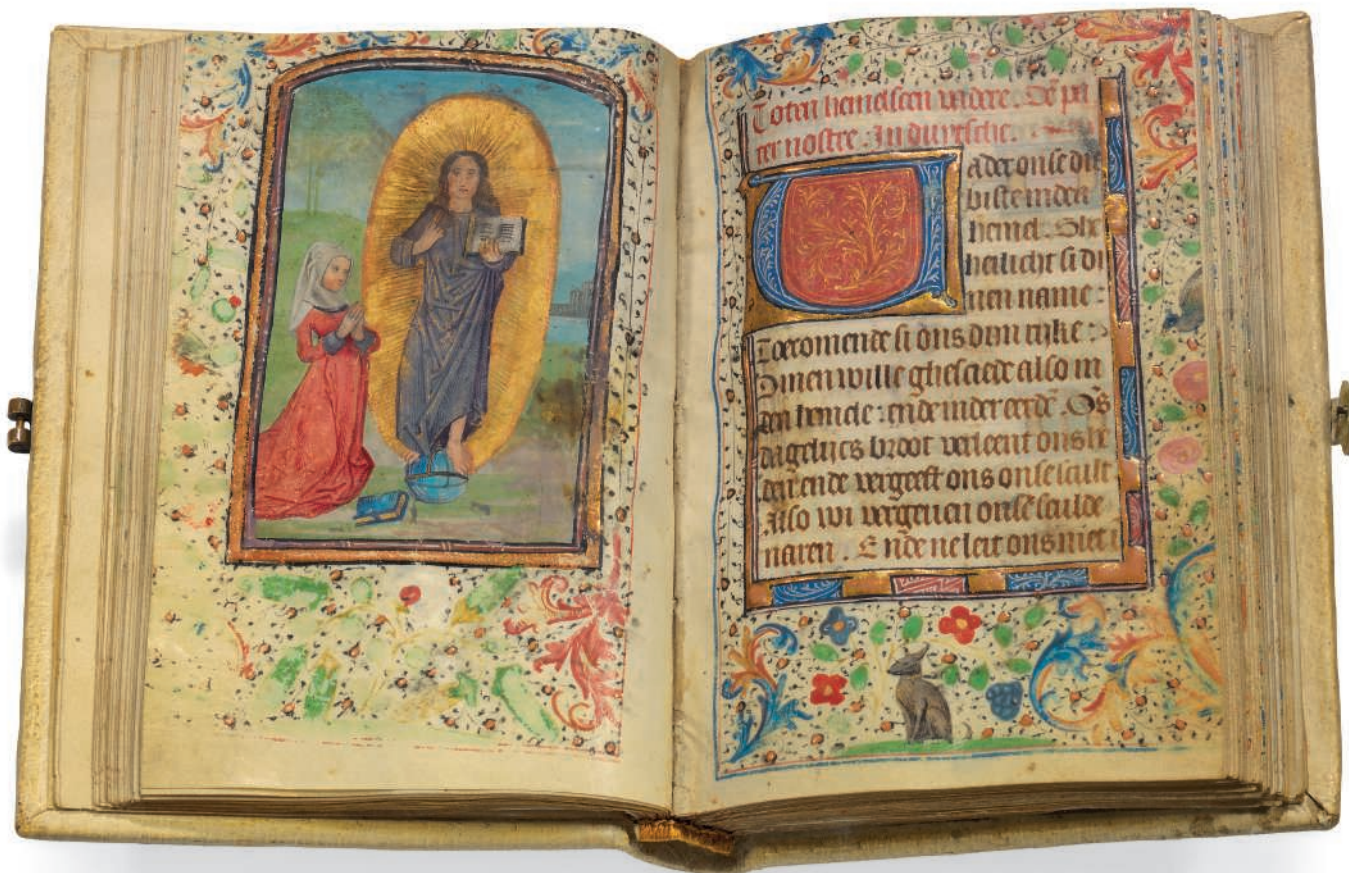 Toten hemelscen vadere. De pa
ter nostre. In duytsche.
Vader onse die
biste inden
hemel. Ghe
heilicht si di
nen name:
Toecomende si ons dijn rijke:
Dinen wille ghesciede also in
den hemele: ende inder eerde. Ōs
dagelijcs broot verleent ons he
den ende vergeeft ons onse scult
Also wi vergeven onsē sculde
naren. Ende ne leit ons niet i